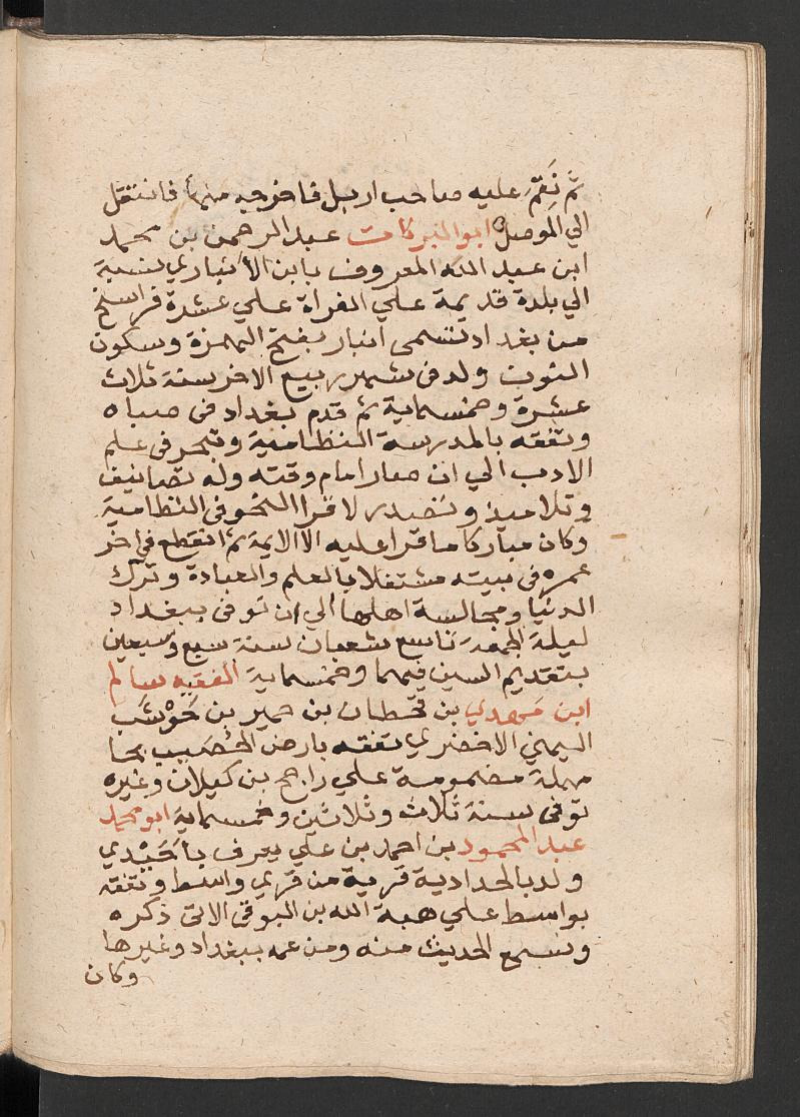 ثم نَقِمَ عليه صاحب اربل فاخرجه منها فانتقل
الي الموصل ابو البركات عبد الرحمن بن محمد
ابن عبد الله المعروف بابن الأنباري نسبة
الي بلدة قديمة علي الفراة علي عشرة فراسخ
من بغداد تسمى انبار بفتح الهمزة وسكون
النون ولد في شهر ربيع الاخر سنة ثلاث
عشرة وخمسماية ثم قدم بغداد في صباه
وتفقه بالمدرسة النظامية وتبحر في علم
الادب الي ان صار امام وقته وله تصانيف
وتلاميذ وتصدر لاقرا النحو في النظامية
وكان مباركا ما قرا عليه الا الايمة ثم انقطع في اخر
عمره في بيته مشتغلا بالعلم والعبادة وترك
الدنيا ومجالسة اهلها الي ان توفي ببغداد
ليلة الجمعة تاسع شعبان سنة سبع وسبعين
بتقديم السين فيهما وخمسماية الفقيه سالم
ابن مهدي بن قحطان بن حمير بن حَوْشَب
اليمني الاخضري تفقه بارض الحُصَيب بحا
مهملة مضمومة علي راجح بن كهلان وغيره
توفي سنة ثلاث وثلاثين وخمسماية ابو محمد
عبد المحمود بن احمد بن علي يعرف
ولد بالحدادية قرية من قري واسط وتفقه
بواسط علي هبة الله بن البوقي الاتي ذكره
وسمع الحديث منه ومن عمه ببغداد وغيرها
وكان